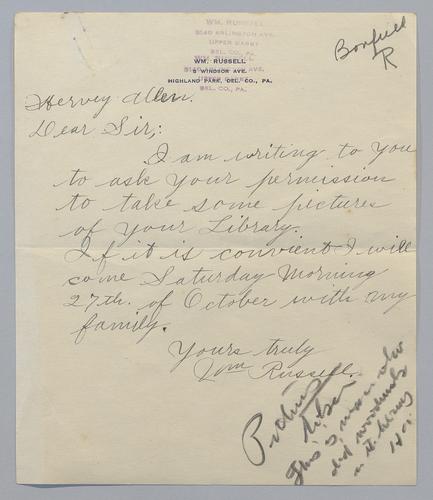 WM. RUSSELL
5140 ARLINGTON AVE.
UPPER DARBY
DEL. CO., PA.
WM. RUSSELL
5 WINDSOR AVE.
HIGHLAND PARK, DEL. CO., PA.
DEL. CO., PA.
R
Hervey Allen.
Dear Sir,:
I am writing to you
to ask your permission
to take some pictures
of your Library.
If it is convient I will
come Saturday Morning
27th. of October with my
family.
Yours truly
Wm Russell.
This is man who
did woodwork
in